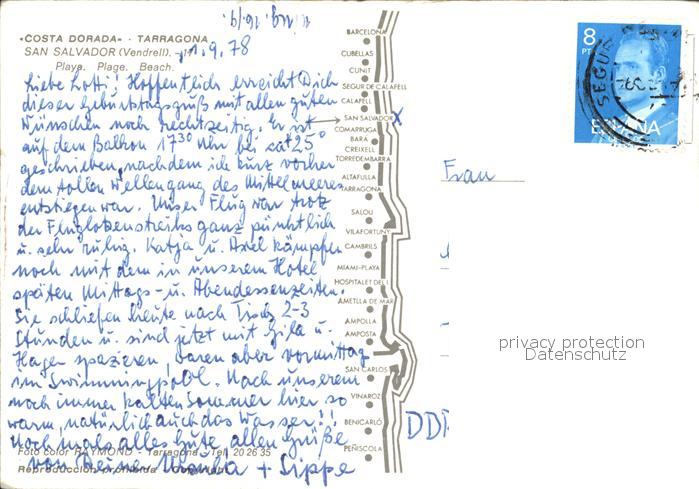 «COSTA DORADA» · TARRAGONA
SAN SALVADOR (Vendrell). 1.9.78
Playa. Plage. Beach.
Liebe Lotti! Hoffentlich erreicht Dich
dieser Geburtstagsgruß mit allen guten
Wünschen noch rechtzeitig. Er ist
auf dem Balkon 17³⁰ Uhr bei ca 25°
geschrieben, nachdem ich kurz vorher
dem tollen Wellengang des Mittelmeeres
entstiegen war. Unser Flug war trotz
der Fluglotsenstreiks ganz pünktlich
u. sehr ruhig. Katja u. Axel kämpfen
noch mit dem in unserem Hotel
späten Mittags- u. Abendessenzeiten.
Sie schliefen heute nach Tisch 2-3
Stunden u. sind jetzt mit Gila u.
Hagen spazieren, waren aber vormittag
im Swimmingpool. Nach unserem
noch immer kalten Sommer hier so
warm, natürlich auch das Wasser!!
Nochmals alles Gute, allen Grüße
von Deine Ursula + Sippe
Foto color RAYMOND - Tarragona - Tel. 20 26 35
Reproducción prohibida
BARCELONA
CUBELLAS
CUNIT
SEGUR DE CALAFELL
CALAFELL
SAN SALVADOR X
COMARRUGA
BARÁ
CREIXELL
TORREDEMBARRA
ALTAFULLA
TARRAGONA
SALOU
VILAFORTUNY
CAMBRILS
MIAMI-PLAYA
HOSPITALET DEL I.
AMETLLA DE MAR
AMPOLLA
AMPOSTA
SAN CARLOS
VINAROZ
BENICARLÓ
PEÑISCOLA
8
PT
ESPAÑA
SEGUR
Frau
privacy protection
Datenschutz
DDR